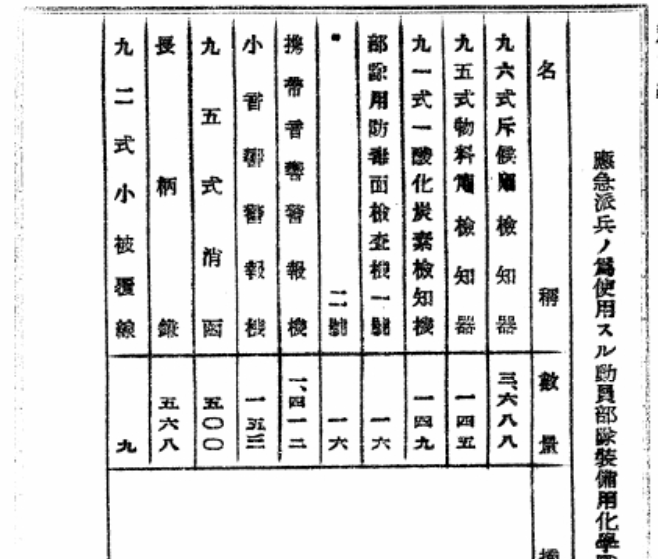 應急派兵ノ爲使用スル動員部隊裝備用化學
名稱
數量
九六式斥候用檢知器
三、六八八
九五式物料用檢知器
一四五
九一式一酸化炭素檢知機
一四九
部隊用防毒面檢査機一號
一六
〃 二號
一六
携帶音響警報機
一、四一二
小音響警報機
一五三
九五式消函
五〇〇
長柄鎌
五六八
九二式小被覆線
九